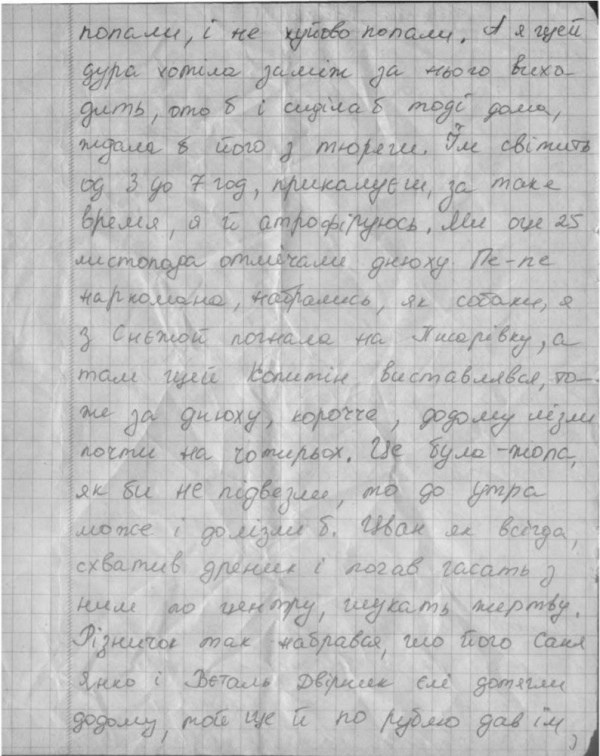 попали, і не хуйово попали. А я щей
дура хотіла заміж за нього вихо-
дить, ото б і сиділа б тоді дома,
ждала б його з тюряги. Їм світить
од 3 до 7 год, прикалуєш, за таке
время, я й атрофіруюсь. Ми оце 25
листопада отмічали днюху Пе-пе
наркомана, набрались, як собаки, я
з Снєжой погнала на Писарівку, а
там щей Копитін виставлявся, то-
же за днюху, корочче, додому лізли
почти на чотирьох. Це була жопа,
як би не підвезли, то до утра
може і долізли б. Іван як всігда,
схватив дреник і почав гасать з
ним по центру, шукать жертву.
Різничок так набрався, шо його Саня
Янко і Вєталь Двірник єлі дотягли
додому, тоб ще й по рублю дав їм,